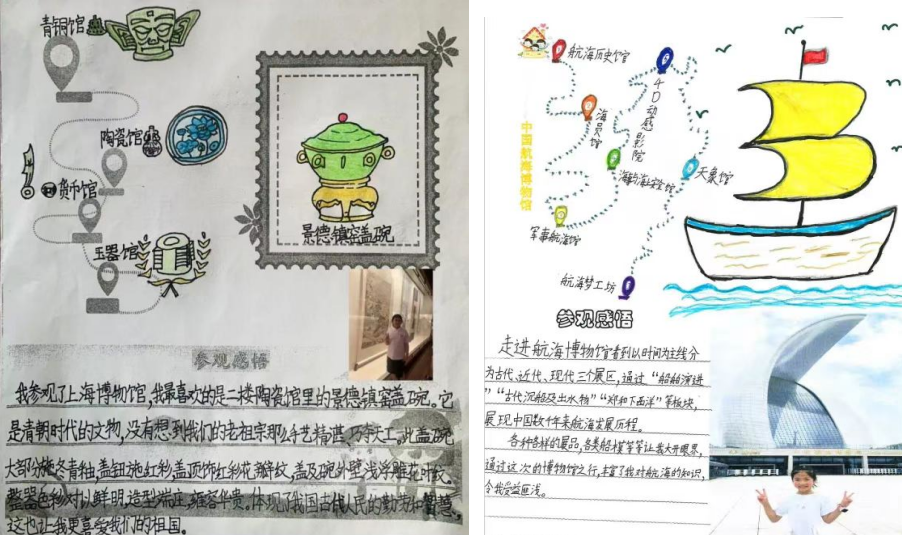 青铜馆
陶瓷馆
货币馆
玉器馆
景德镇窑盖碗
参观感悟
我参观了上海博物馆,我最喜欢的是二楼陶瓷馆里的景德镇窑盖碗。它
是清朝时代的文物,没有想到我们的老祖宗那么手艺精湛、巧夺天工。此盖碗
大部分施冬青釉,盖钮施红彩,盖顶饰红彩花瓣纹,盖及碗外壁浅浮雕花叶纹。
整器色彩对比鲜明,造型端庄,雍容华贵。体现了我国古代人民的勤劳和智慧,
这也让我更喜爱我们的祖国。
中国航海博物馆
航海历史馆
海员馆
军事航海馆
4D动感影院
天象馆
航海梦工坊
参观感悟
走进航海博物馆看到以时间为主线分
为古代、近代、现代三个展区,通过“船舶演进”
“古代沉船及出水物”“郑和下西洋”等板块,
展现中国数千年来航海发展历程。
各种各样的展品,各类船模等等让我大开眼界,
通过这次的博物馆之行,丰富了我对航海的知识,
令我受益匪浅。